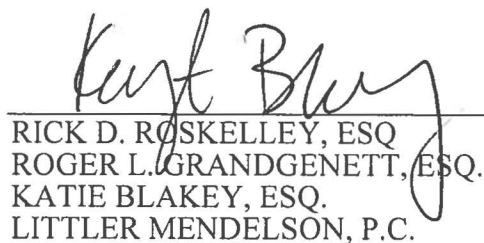 RICK D. ROSKELLEY, ESQ
ROGER L. GRANDGENETT, ESQ.
KATIE BLAKEY, ESQ.
LITTLER MENDELSON, P.C.